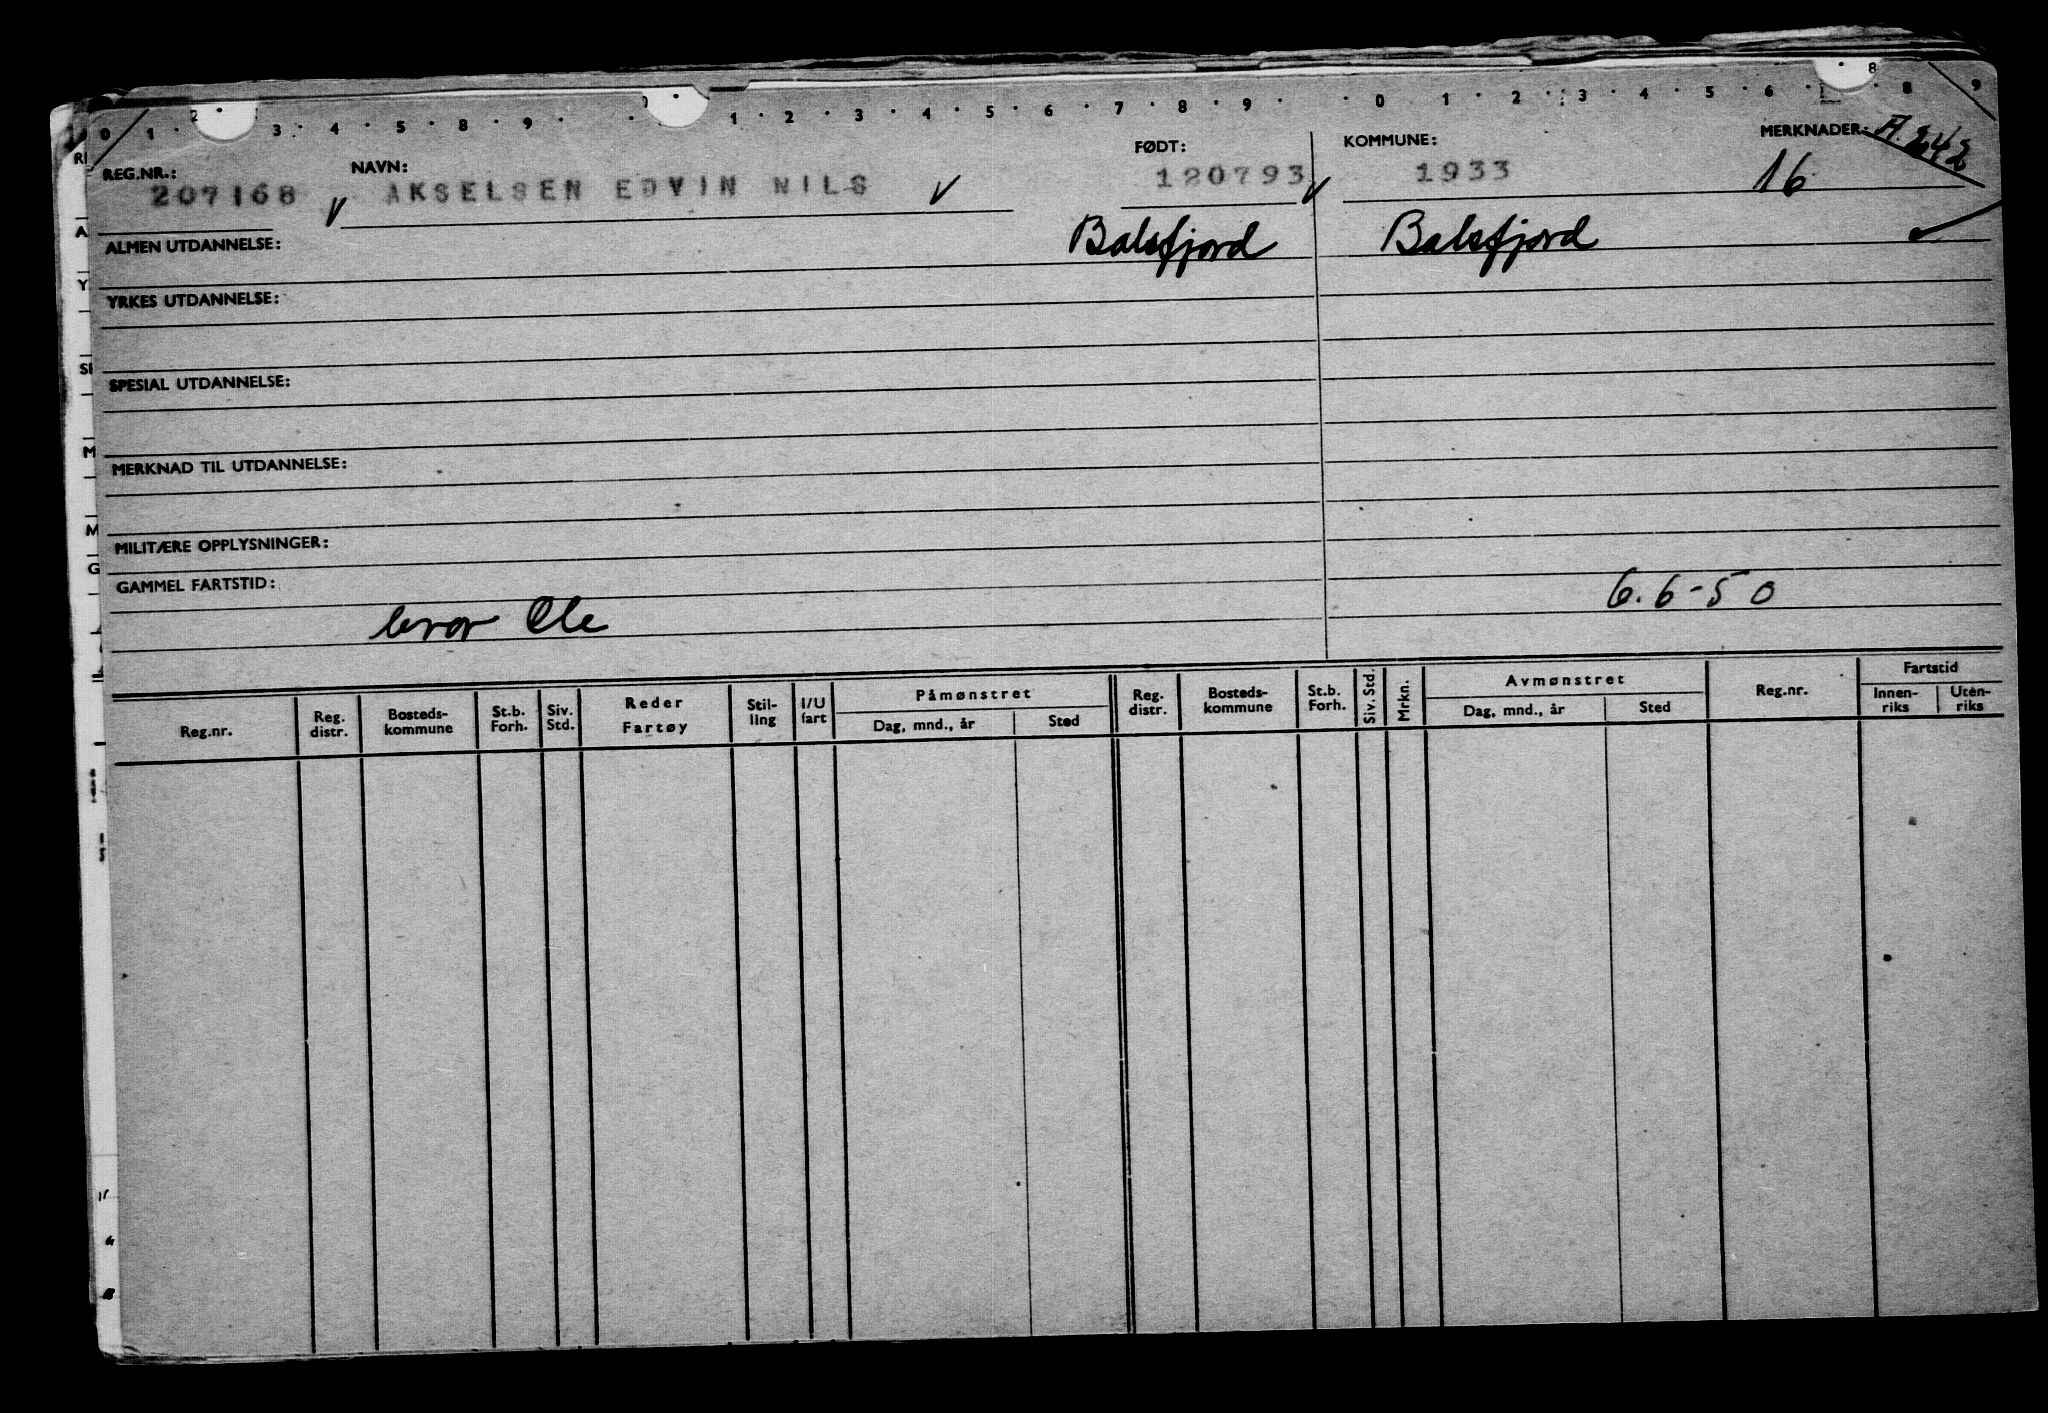 0 1 2 3 4 5 8 9 0 1 2 3 4 5 6 7 8 9 0 1 2 3 4 5 6 1 8 8 9
REG.NR.: NAVN: FØDT: KOMMUNE: MERKNADER: A 242
207168 AKSELSEN EDVIN NILS 120793 1933 16
ALMEN UTDANNELSE: Balsfjord Balsfjord
YRKES UTDANNELSE:
SPESIAL UTDANNELSE:
MERKNAD TIL UTDANNELSE:
MILITÆRE OPPLYSNINGER:
GAMMEL FARTSTID: 6.6-50
bror Ole
Reg.nr. Reg. distr. Bosteds-kommune St.b. Forh. Siv. Std. Reder Fartøy Stil-ling I/U fart Påmønstret Dag, mnd., år Sted Reg. distr. Bosteds-kommune St.b. Forh. Siv. Std. Mrkn. Avmønstret Dag, mnd., år Sted Reg.nr. Fartstid Innen-riks Uten-riks